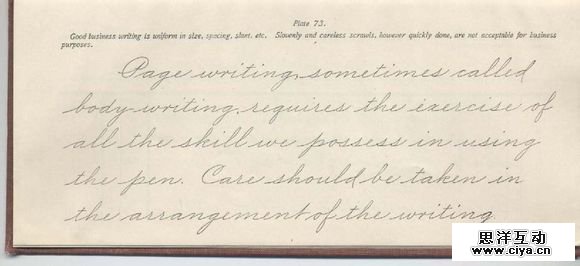 Plate 73.
Good business writing is uniform in size, spacing, slant, etc. Slovenly and careless scrawls, however quickly done, are not acceptable for business
purposes.
Page writing, sometimes called
body writing, requires the exercise of
all the skill we possess in using
the pen. Care should be taken in
the arrangement of the writing
思洋互动
www.ciya.cn